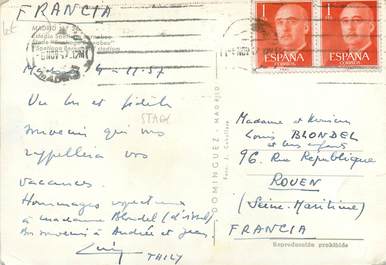 FRANCIA
MADRID
Estadio Santiago Bernabeu
NOV
1
ESPAÑA
CORREOS
1
ESPAÑA
CORREOS
4-11-57
Un bon et fidèle
souvenir qui vous
rappellera vos
STADE
vacances.
Hommages respectueux
à Madame Blondel
Bon souvenir à Andrée et Jean
THILY
DOMINGUEZ - MADRID
Madame et Monsieur
Louis BLONDEL
et les enfants
96, Rue République
ROUEN
(Seine-Maritime)
FRANCIA
Reproducción prohibida